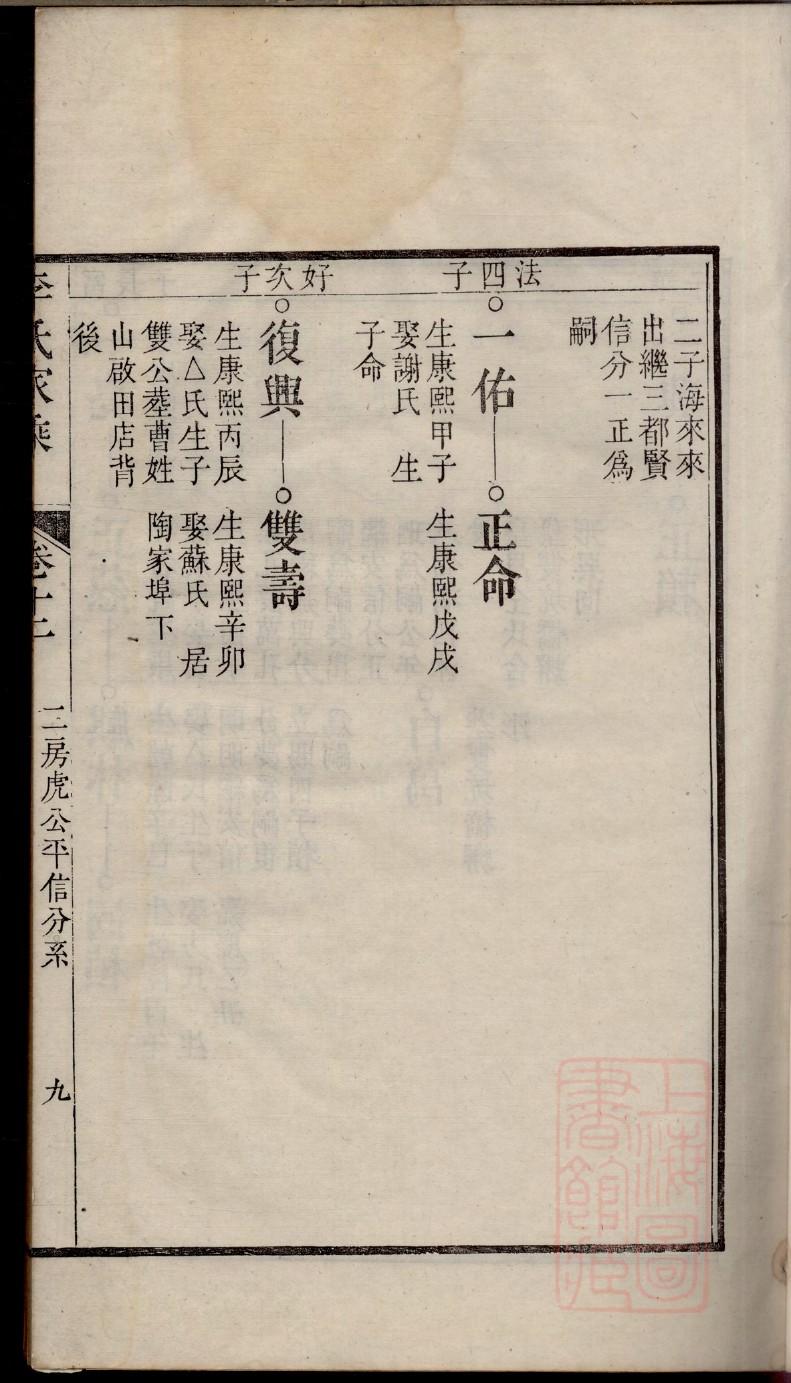 二子海來來
出繼三都賢
信分一正爲
嗣
法四子
一佑
生康熙甲子
娶謝氏 生
子命
正命
生康熙戊戌
好次子
復興
生康熙丙辰
娶△氏生子
雙公塟曹姓
山啟田店背
後
雙壽
生康熙辛卯
娶蘇氏 居
陶家埠下
李氏家乘
卷十二
二房虎公平信分系
九
上海圖
書館藏